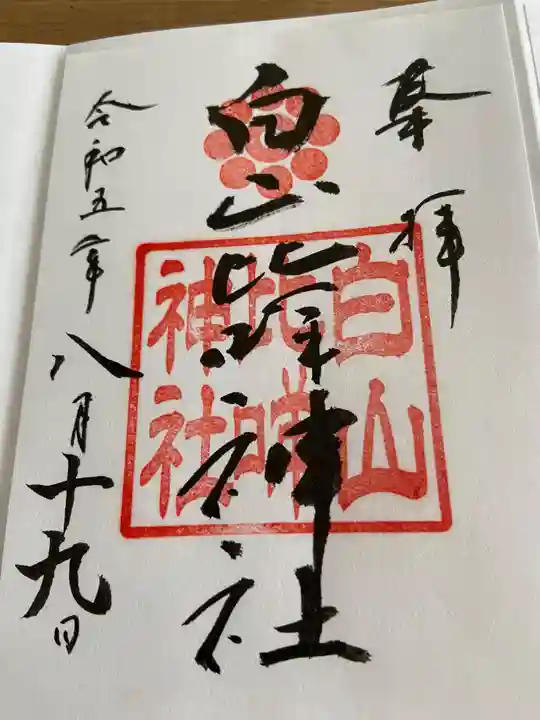 奉拝
白山比咩神社
白山
比咩
神社
令和五年八月十九日